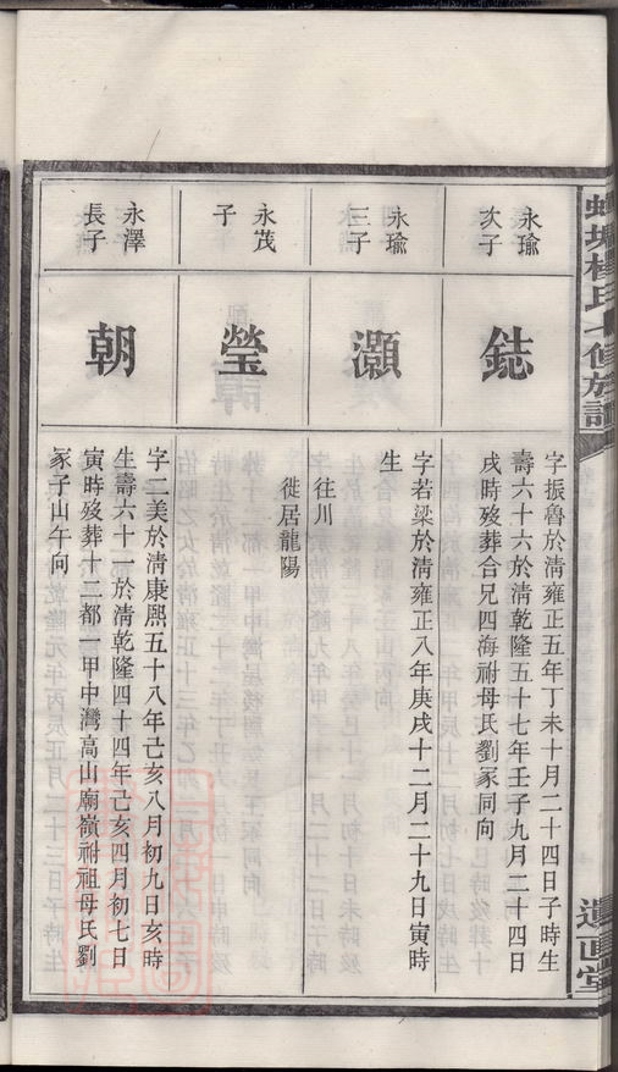 楊氏七修族譜
永瑜
次子
鋕
字振魯於清雍正五年丁未十月二十四日子時生
壽六十六於清乾隆五十七年壬子九月二十四日
戌時歿葬合兄四海祔母氏劉冡同向
永瑜
三子
灝
字若梁於清雍正八年庚戌十二月二十九日寅時
生
往川
永茂
子
瑩
徙居龍陽
永澤
長子
朝
字二美於清康熙五十八年己亥八月初九日亥時
生壽六十一於清乾隆四十四年己亥四月初七日
寅時歿葬十二都一甲中灣高山廟嶺祔祖母氏劉
冡子山午向